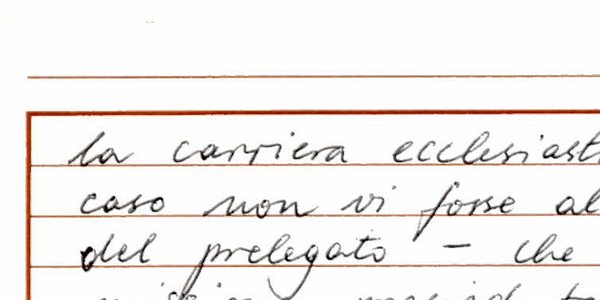 la carriera ecclesiast
caso non vi fosse al
del prelegato - che